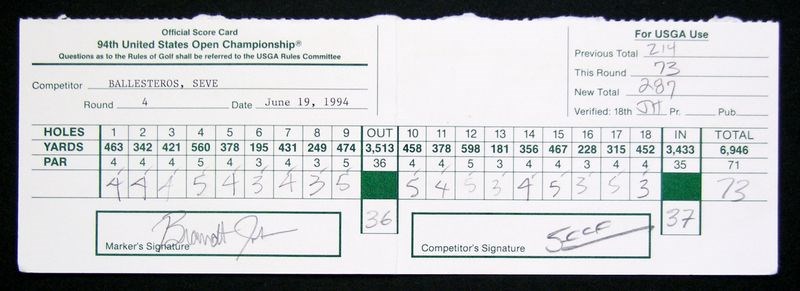 Official Score Card
94th United States Open Championship®
Questions as to the Rules of Golf shall be referred to the USGA Rules Committee
Competitor BALLESTEROS, SEVE
Round 4 Date June 19, 1994
For USGA Use
Previous Total 214
This Round 73
New Total 287
Verified: 18th JH Pr. Pub.
HOLES 1 2 3 4 5 6 7 8 9 OUT 10 11 12 13 14 15 16 17 18 IN TOTAL
YARDS 463 342 421 560 378 195 431 249 474 3,513 458 378 598 181 356 467 228 315 452 3,433 6,946
PAR 4 4 4 5 4 3 4 3 5 36 4 4 5 3 4 4 3 4 4 35 71
4 4 4 5 4 3 4 3 5 5 4 5 3 4 5 3 5 3 73
36 37
Marker's Signature Brandt
Competitor's Signature Seve